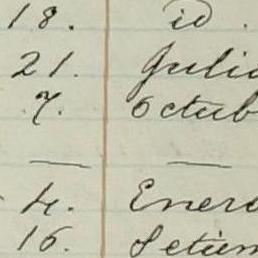 18. id.
21. Julio
7. Octub
4. Enero
16. Setiem